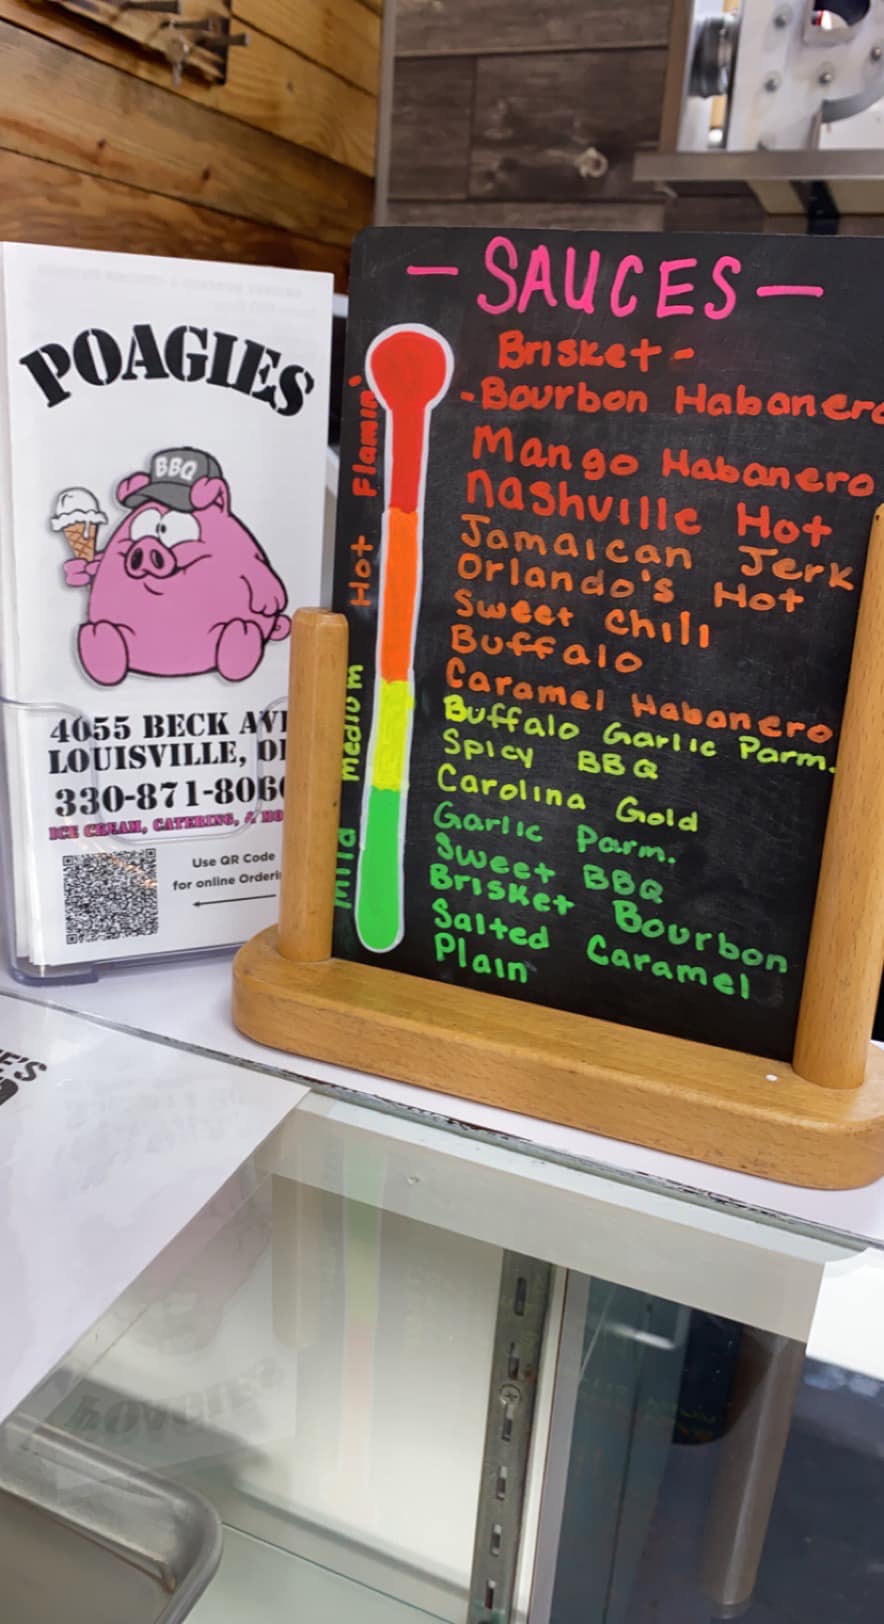 POAGIES
BBQ
4055 BECK AV
LOUISVILLE, O
330-871-806
ICE CREAM, CATERING, &
Use QR Code
for online Orderi
- SAUCES -
Brisket -
- Bourbon Habanero
Mango Habanero
Nashville Hot
Jamaican Jerk
Orlando's Hot
Sweet Chili
Buffalo
Caramel Habanero
Buffalo Garlic Parm.
Spicy BBQ
Carolina Gold
Garlic Parm.
Sweet BBQ
Brisket Bourbon
Salted Caramel
Plain
Flamin'
Hot
Medium
Mild
E'S